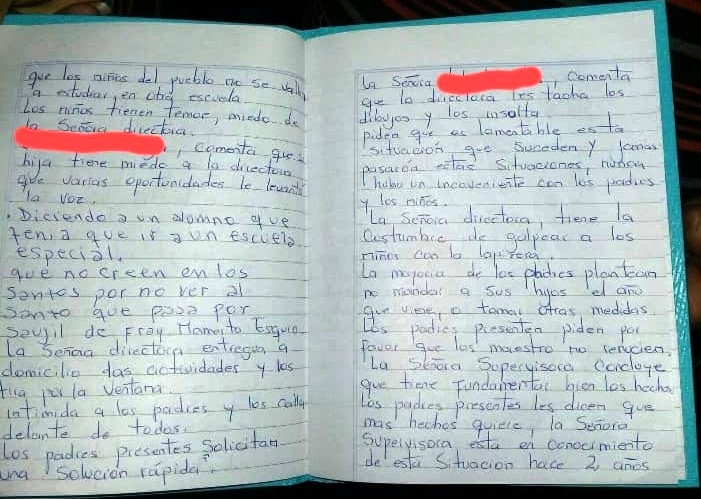 que los niños del pueblo no se vallan
a estudiar, en otra escuela
Los niños tienen temor, miedo de
la Señora directora.
, comenta que su
hija tiene miedo a la directora
que varias oportunidades le levantó
la voz.
. Diciendo a un alomno que
tenía que ir a un escuela
especial.
que no creen en los
Santos por no ver al
Santo que pasa por
Saujil de Fray Mamerto Esquiu
La Señora directora entregua a
domicilio las actividades y los
tira por la ventana.
intimida a los padres y los calla
delante de todos.
Los padres presentes Solicitan
una Solución rápida.
La Señora , comenta
que la directora les tacha los
dibujos y los insulta.
piden que es lamentable esta
situación que suceden y jamás
pasaron estas Situaciones, nunca
hubo un inconveniente con los padres
y los niños.
La Señora directora, tiene la
Costumbre de golpear a los
niños con la lapicera.
La mayoria de los padres plantean
no mandar a sus hijos el año
que viene, o tomar otras medidas.
Los padres presentes piden por
favor que los maestro no renucien.
La Señora Supervisora Concluye
que tiene Fundamentar bien los hechos
Los padres presentes les dicen que
mas hechos quiere, la Señora
Supervisora esta en conocimiento
de esta Situacion hace 2 años